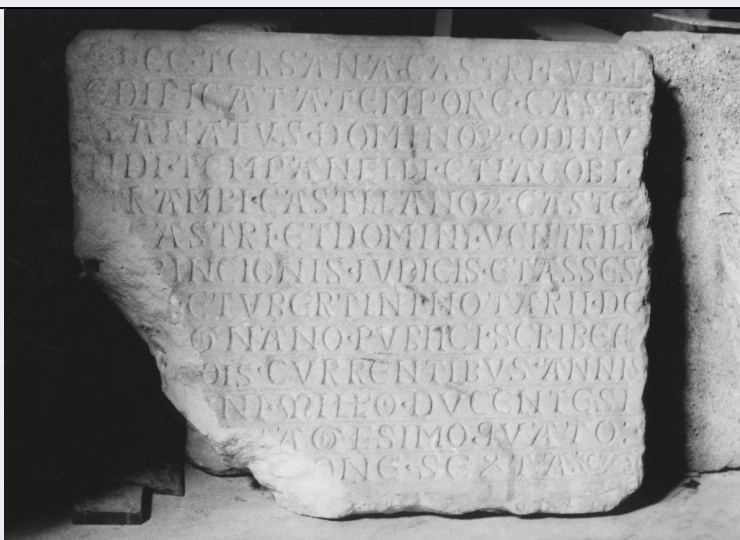 TERSANA·CASTRI·
EDIFICATA·TEMPORE·CAST
ANATVS·DOMINOꝝ·ODIMV
NDI·TEMPANELLI·ETIACOBI·
KAMPI·CASTLANOꝝ·CASTE
ASTRI·ETDOMINI·VENTRILI
INCIONIS·IVDICIS·ETASSES
ETVBERTINI·NOTARII·DE
GNANO·PVBLICI·SCRIBE
CVRRENTIBVS·ANNIS
NI·MILLO·DVCENTESI
ESIMO·QVATO:
ONE·SEXTA